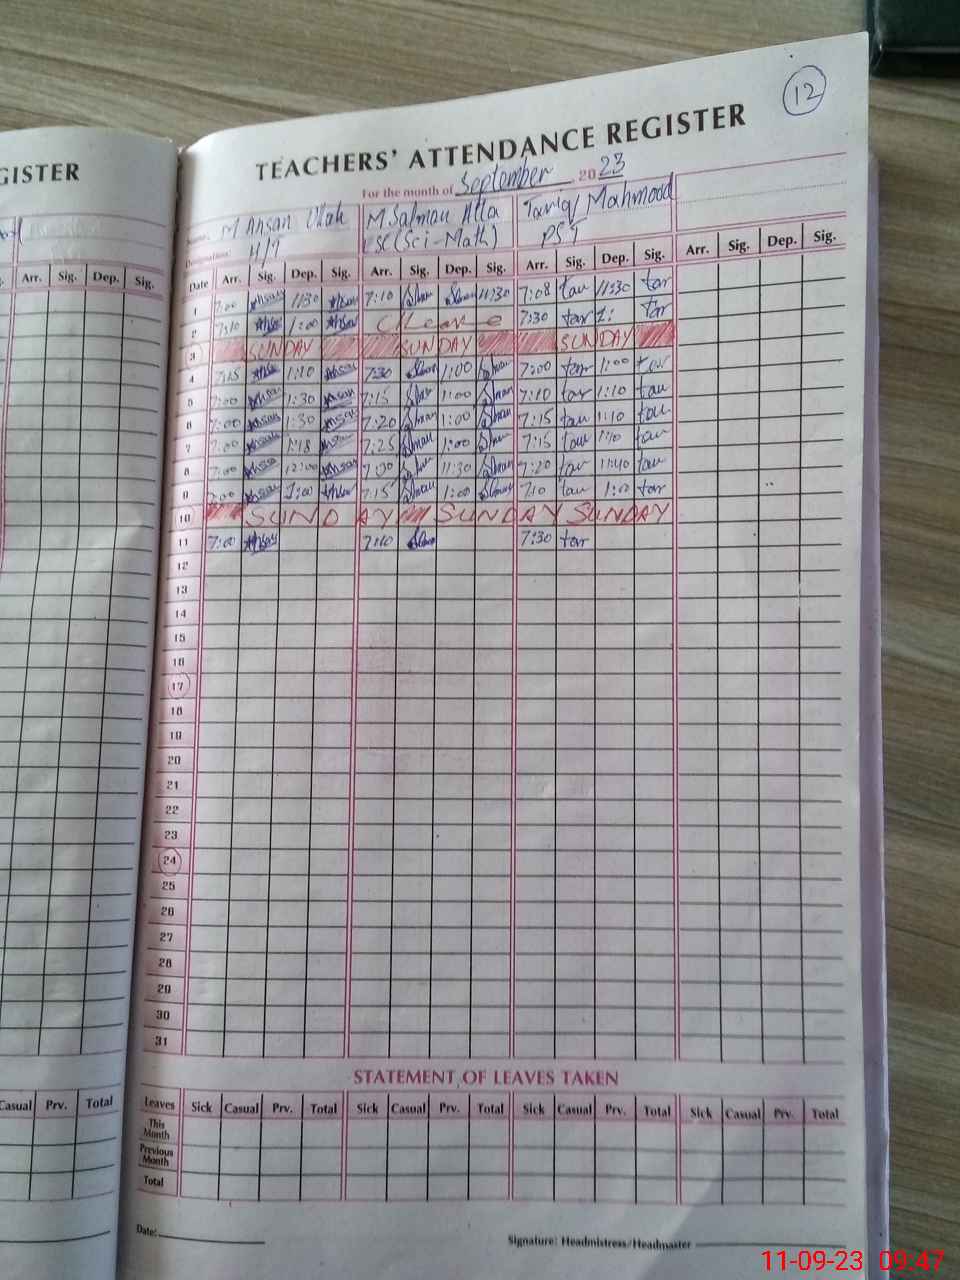 GISTER
Arr. Sig. Dep. Sig.
Casual Prv. Total
12
TEACHERS' ATTENDANCE REGISTER
For the month of September 2023
Name: M Ahsan Ullah M Salman Atta Tariq Mahmood
Designation: H/T ESE (Sci-Math) PST
Date Arr. Sig. Dep. Sig. Arr. Sig. Dep. Sig. Arr. Sig. Dep. Sig. Arr. Sig. Dep. Sig.
1 7:00 Ahsan 11:30 Ahsan 7:10 Slman Slman 11:30 7:08 tar 11:30 tar
2 7:10 Ahsan 1:00 Ahsan C Leave 7:30 tar 1: tar
3 SUNDAY SUNDAY SUNDAY
4 7:15 1:10 Ahsan 7:30 Slman 1:00 Slman 7:00 tar 1:00 tar
5 7:00 Ahsan 1:30 Ahsan 7:15 Slman 1:00 Slman 7:10 tar 1:10 tar
6 7:00 Ahsan 1:30 Ahsan 7:20 Slman 1:00 Slman 7:15 tar 1:10 tar
7 7:00 Ahsan 1:18 7:25 Slman 1:00 Slman 7:15 tar 1:10 tar
8 7:00 Ahsan 12:00 Ahsan 7:30 Slman 11:30 Slman 7:20 tar 11:40 tar
9 7:00 Ahsan 1:00 Ahsan 7:15 Slman 1:00 Slman 7:10 tar 1:00 tar
10 SUNDAY SUNDAY SUNDAY
11 7:00 Ahsan 7:10 Slman 7:30 tar
12
13
14
15
16
17
18
19
20
21
22
23
24
25
26
27
28
29
30
31
STATEMENT OF LEAVES TAKEN
Leaves Sick Casual Prv. Total Sick Casual Prv. Total Sick Casual Prv. Total Sick Casual Prv. Total
This
Month
Previous
Month
Total
Date:
Signature: Headmistress/Headmaster
11-09-23 09:47